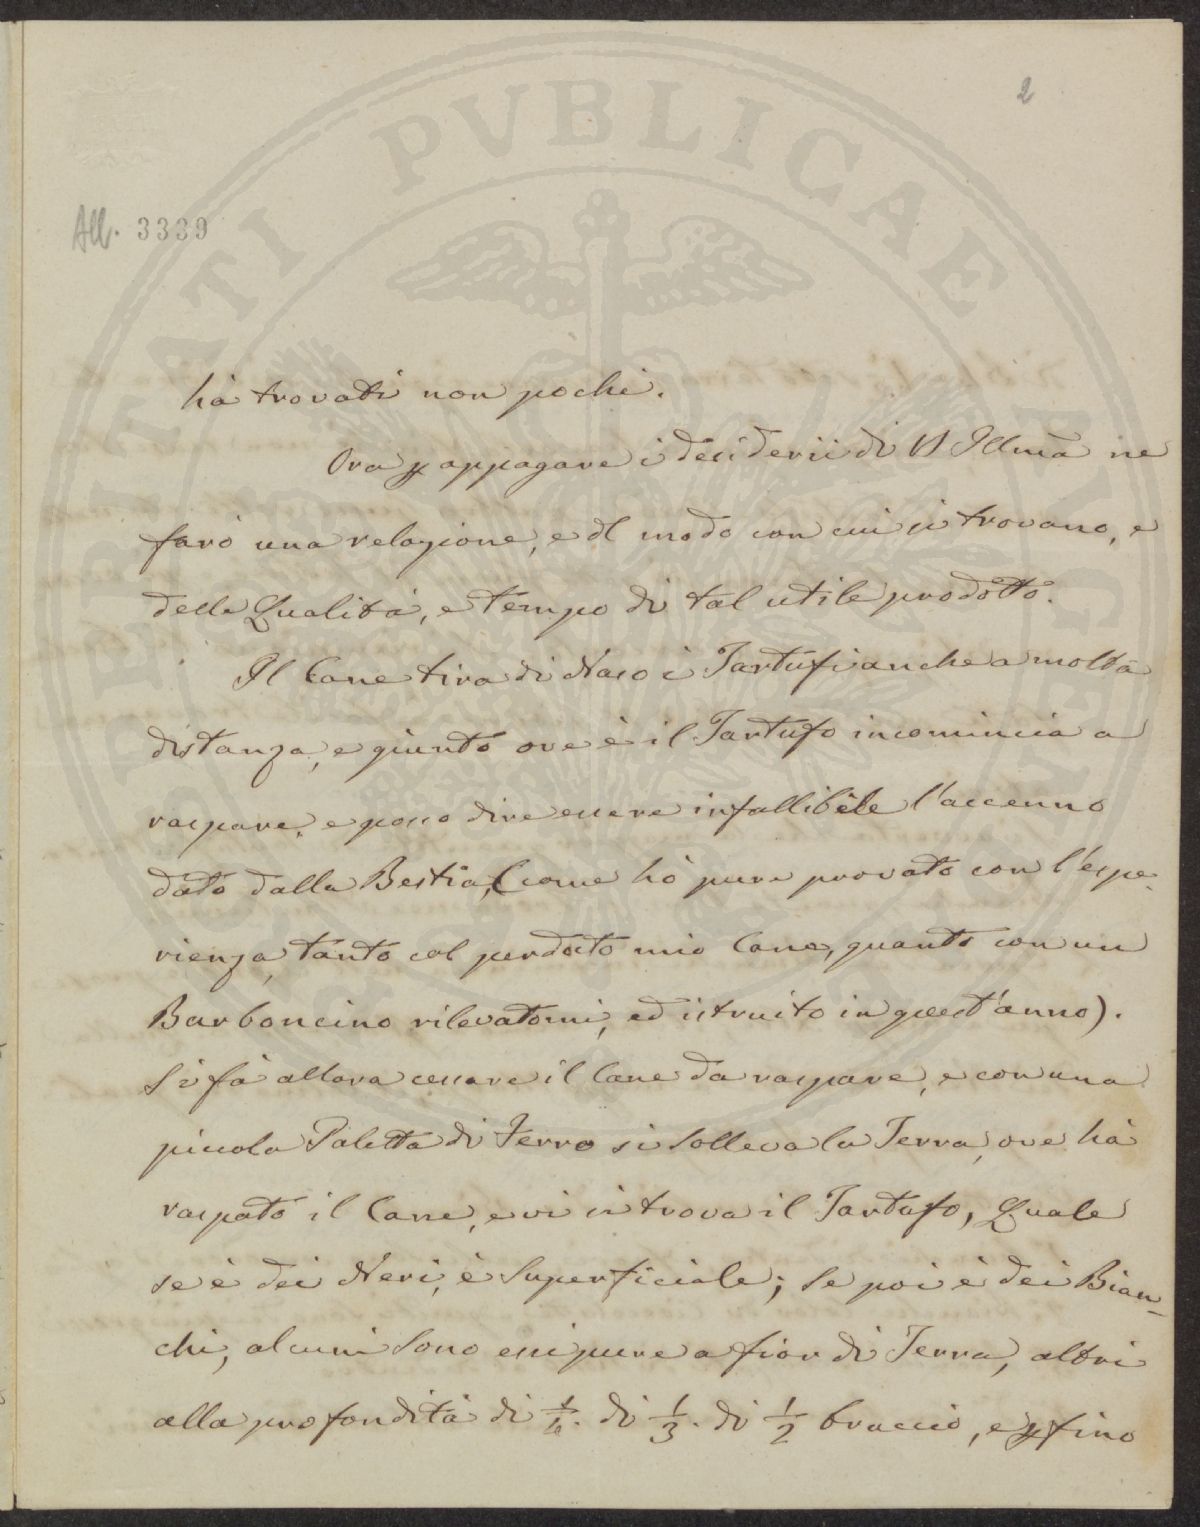 2
All. 3339
hà trovati non pochi.
Ora p appagare i desiderii di VS Illma ne
farò una relazione, e dl modo con cui si trovano, e
della Qualità, e tempo di tal utile prodotto.
Il Cane tira di Naso i Tartufi anche a molta
distanza, e giunto ove è il Tartufo incomincia a
raspare, e posso dire essere infallibile l'accenno
dato dalla Bestia, (come hò pure provato con l'espe-
rienza, tanto col perduto mio Cane, quanto con un
Barboncino rilevatomi, ed istruito in quest'anno).
Si fà allora cessare il Cane da raspare, e con una
piccola Paletta di Ferro si solleva la Terra, ove hà
raspato il Cane, e vi si trova il Tartufo, Quale
se è dei Neri, è Superficiale; Se poi è dei Bian-
chi, alcuni Sono essi pure a fior di Terra, altri
alla profondità di 1/4. di 1/3. di 1/2 braccio, e pfino
PVBLICAE